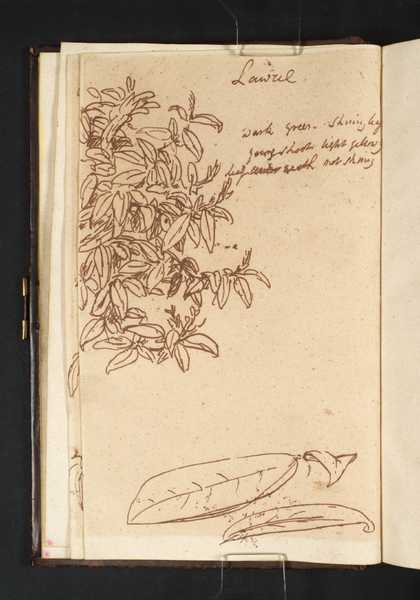 Lawrel.
wark green. Shining leg
young shoots light yellow
leg under neath not shing